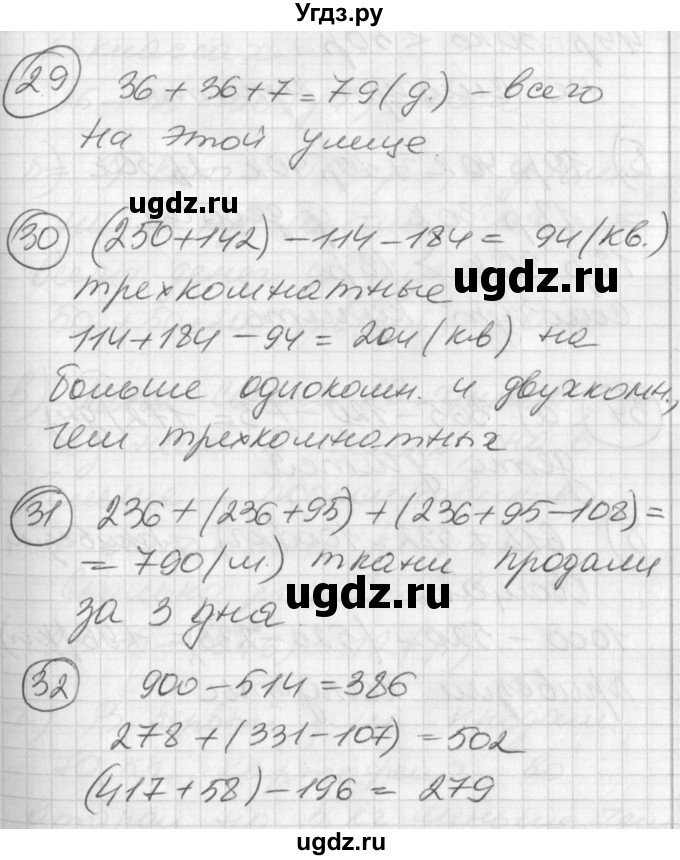 Угдз.ру
29 36 + 36 + 7 = 79 (д.) – всего
на этой улице.
ugdz.ru
30 (250+142) – 114 – 184 = 94 (кв.)
ugdz.ru
трехкомнатные
114 + 184 – 94 = 204 (кв) на
больше однокомн. и двухкомн.,
чем трехкомнатных
31 236 + (236 + 95) + (236 + 95 – 108) =
= 790 (м.) ткани продали
ugdz.ru
за 3 дня
32 900 – 514 = 386
278 + (331 – 107) = 502
(417 + 58) – 196 = 279
ugdz.ru